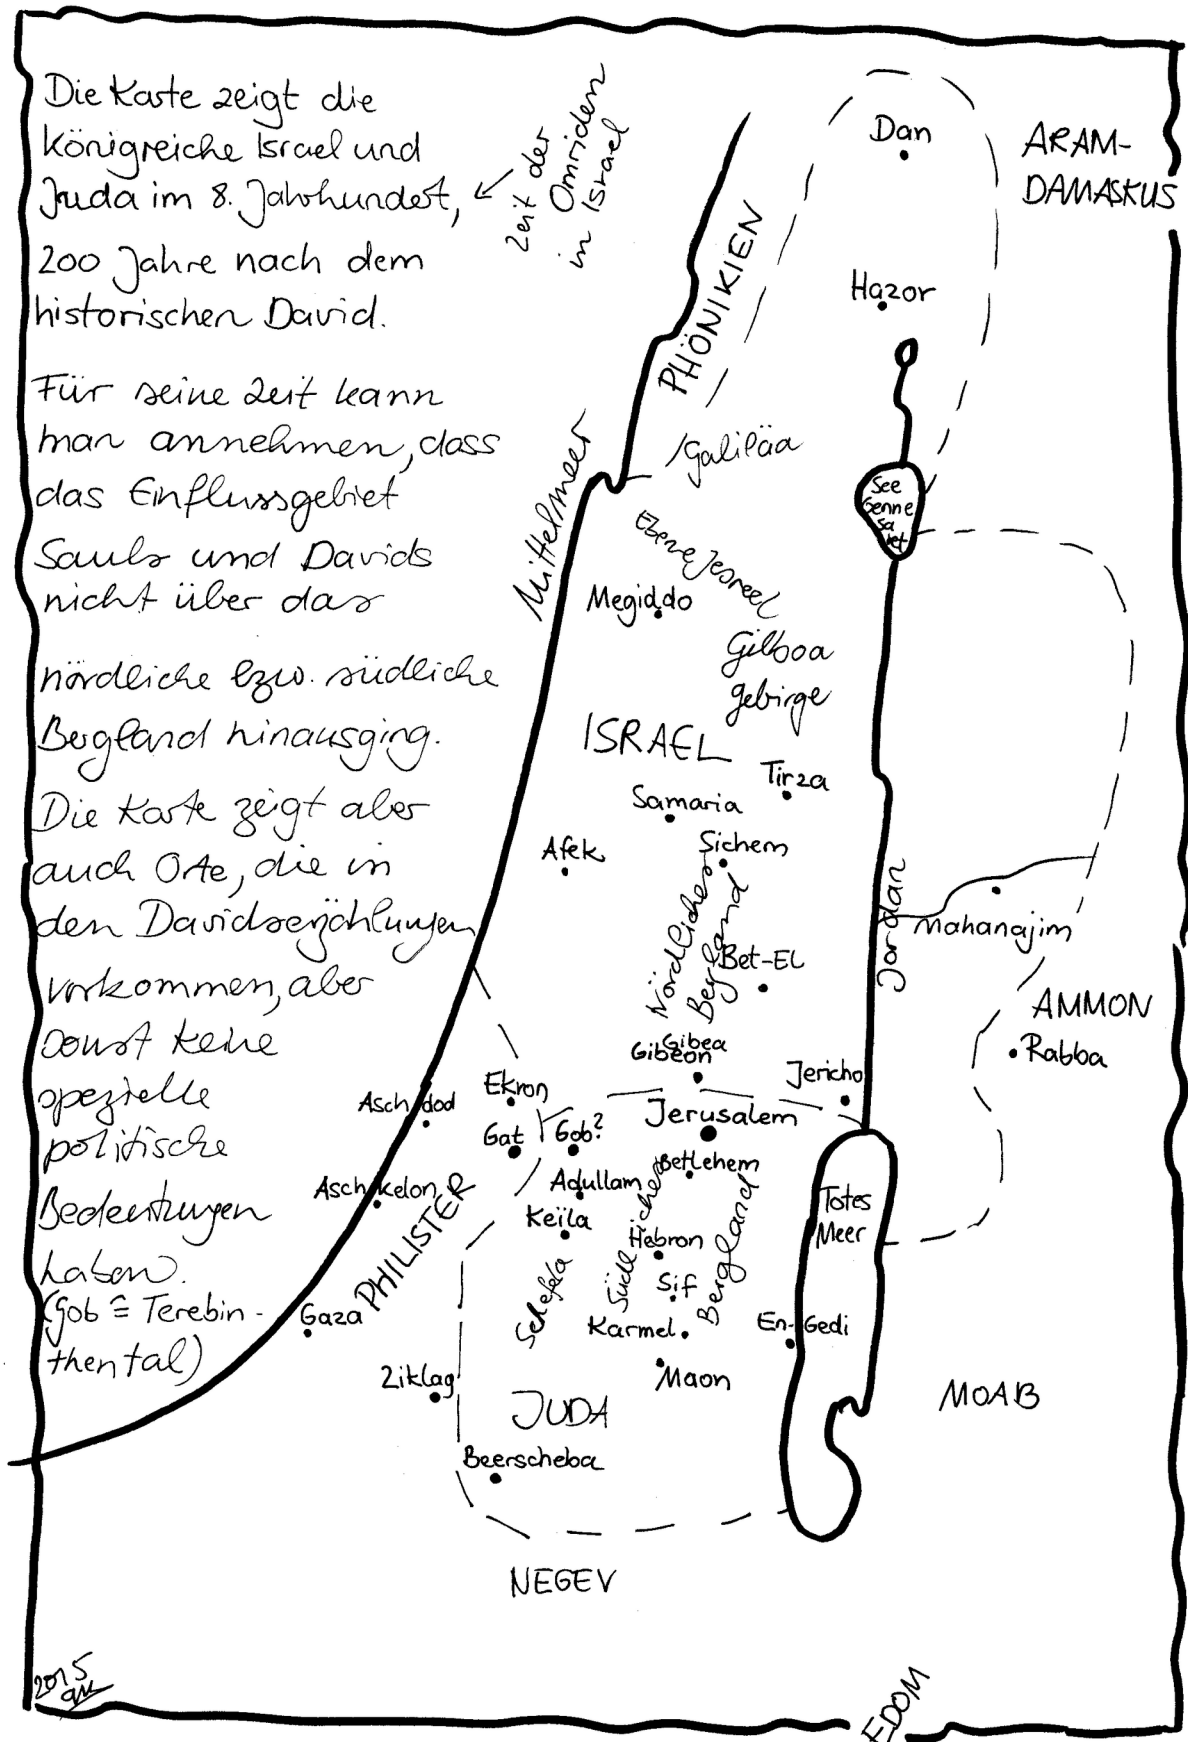 Die Karte zeigt die
Königreiche Israel und
Juda im 8. Jahrhundert,
200 Jahre nach dem
historischen David.
Zeit der
Omriden
in Israel
Für seine Zeit kann
man annehmen, dass
das Einflussgebiet
Sauls und Davids
nicht über das
nördliche bzw. südliche
Bergland hinausging.
Die Karte zeigt aber
auch Orte, die in
den Davidserzählungen
vorkommen, aber
sonst keine
spezielle
politische
Bedeutungen
haben.
(Gob ≙ Terebin-
thental)
Dan
ARAM-
DAMASKUS
PHÖNIKIEN
Hazor
Galiläa
Mittelmeer
See
Genne
sa
ret
Ebene Jesreel
Megiddo
Gilboa
gebirge
ISRAEL
Tirza
Samaria
Afek
Sichem
Nördliches
Bergland
Jordan
Mahanajim
Bet-El
AMMON
Rabba
Gibea
Gibeon
Jericho
Ekron
Aschdod
Jerusalem
Gat
Gob?
Betlehem
Aschkelon
Adullam
Totes
Meer
PHILISTER
Keïla
Hebron
Südliches
Bergland
Schefela
Sif
Gaza
Karmel
En-Gedi
Ziklag
Maon
MOAB
JUDA
Beerscheba
NEGEV
2015
EDOM